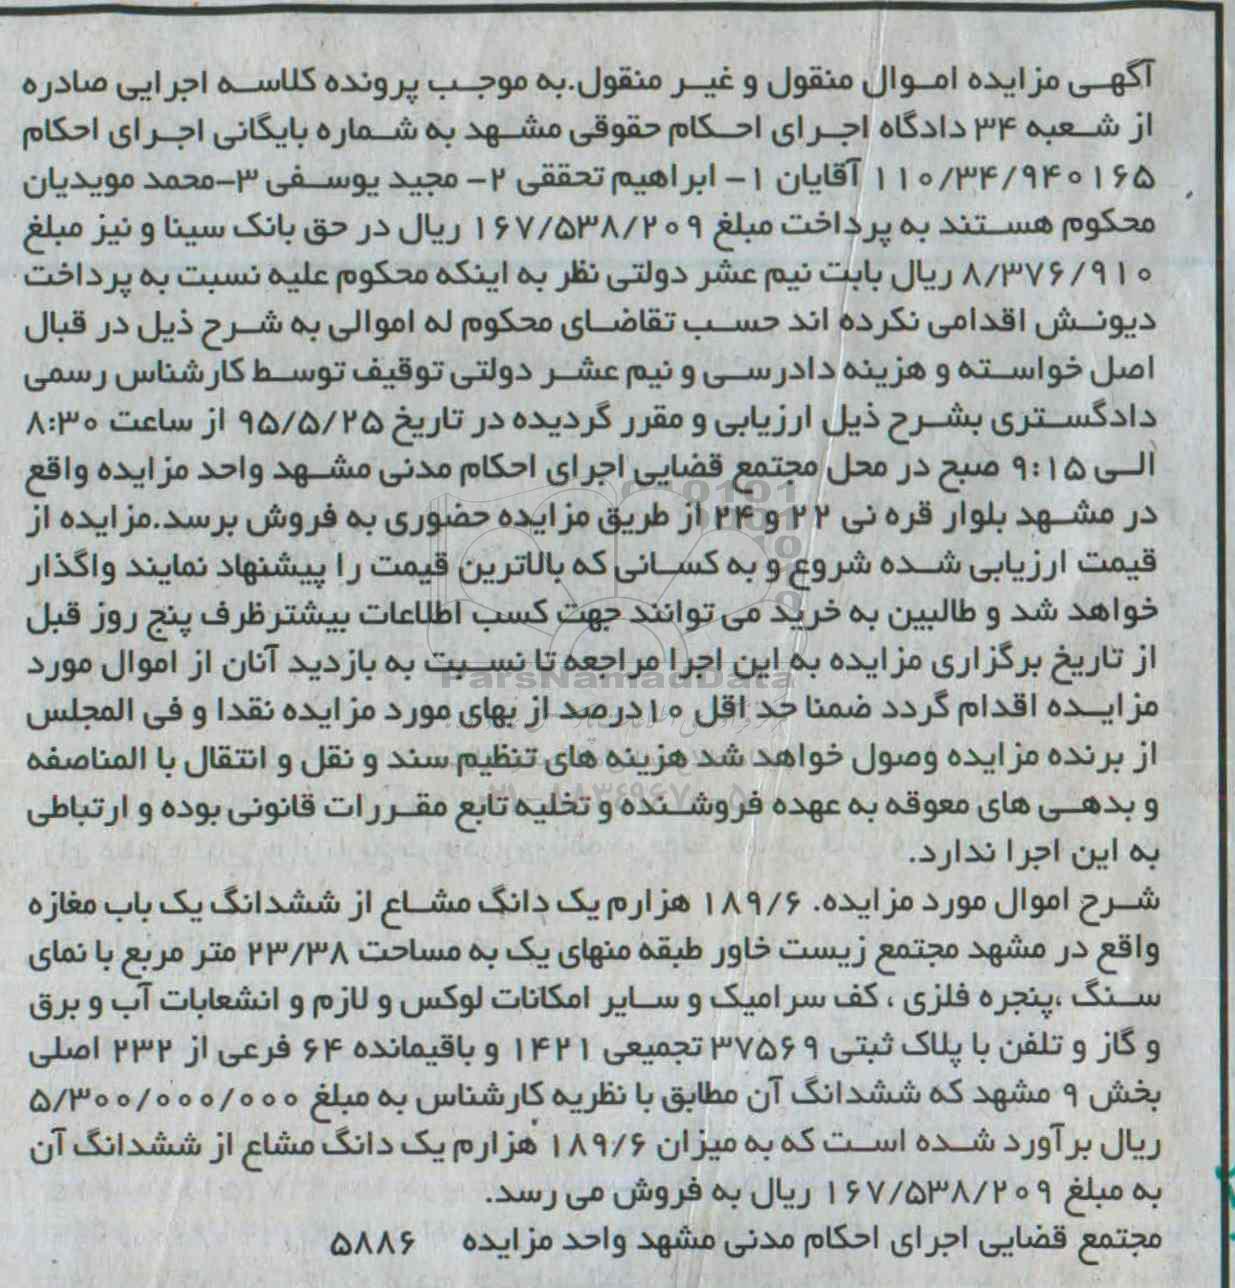 آگهی مزایده اموال منقول و غیر منقول.به موجب پرونده کلاسه اجرایی صادره
از شعبه ۳۴ دادگاه اجرای احکام حقوقی مشهد به شماره بایگانی اجرای احکام
۱۱۰/۳۴/۹۴۰۱۶۵ آقایان ۱- ابراهیم تحققی ۲- مجید یوسفی ۳-محمد مویدیان
محکوم هستند به پرداخت مبلغ ۱۶۷/۵۳۸/۲۰۹ ریال در حق بانک سینا و نیز مبلغ
۸/۳۷۶/۹۱۰ ریال بابت نیم عشر دولتی نظر به اینکه محکوم علیه نسبت به پرداخت
دیونش اقدامی نکرده اند حسب تقاضای محکوم له اموالی به شرح ذیل در قبال
اصل خواسته و هزینه دادرسی و نیم عشر دولتی توقیف توسط کارشناس رسمی
دادگستری بشرح ذیل ارزیابی و مقرر گردیده در تاریخ ۹۵/۵/۲۵ از ساعت ۸:۳۰
الی ۹:۱۵ صبح در محل مجتمع قضایی اجرای احکام مدنی مشهد واحد مزایده واقع
در مشهد بلوار قره نی ۲۲ و ۲۴ از طریق مزایده حضوری به فروش برسد.مزایده از
قیمت ارزیابی شده شروع و به کسانی که بالاترین قیمت را پیشنهاد نمایند واگذار
خواهد شد و طالبین به خرید می توانند جهت کسب اطلاعات بیشترظرف پنج روز قبل
از تاریخ برگزاری مزایده به این اجرا مراجعه تا نسبت به بازدید آنان از اموال مورد
مزایده اقدام گردد ضمنا حد اقل ۱۰درصد از بهای مورد مزایده نقدا و فی المجلس
از برنده مزایده وصول خواهد شد هزینه های تنظیم سند و نقل و انتقال با المناصفه
و بدهی های معوقه به عهده فروشنده و تخلیه تابع مقررات قانونی بوده و ارتباطی
به این اجرا ندارد.
شرح اموال مورد مزایده. ۱۸۹/۶ هزارم یک دانگ مشاع از ششدانگ یک باب مغازه
واقع در مشهد مجتمع زیست خاور طبقه منهای یک به مساحت ۲۳/۳۸ متر مربع با نمای
سنگ ،پنجره فلزی ، کف سرامیک و سایر امکانات لوکس و لازم و انشعابات آب و برق
و گاز و تلفن با پلاک ثبتی ۳۷۵۶۹ تجمیعی ۱۴۲۱ و باقیمانده ۶۴ فرعی از ۲۳۲ اصلی
بخش ۹ مشهد که ششدانگ آن مطابق با نظریه کارشناس به مبلغ ۵/۳۰۰/۰۰۰/۰۰۰
ریال برآورد شده است که به میزان ۱۸۹/۶ هزارم یک دانگ مشاع از ششدانگ آن
به مبلغ ۱۶۷/۵۳۸/۲۰۹ ریال به فروش می رسد.
مجتمع قضایی اجرای احکام مدنی مشهد واحد مزایده ۵۸۸۶
ParsNamadData